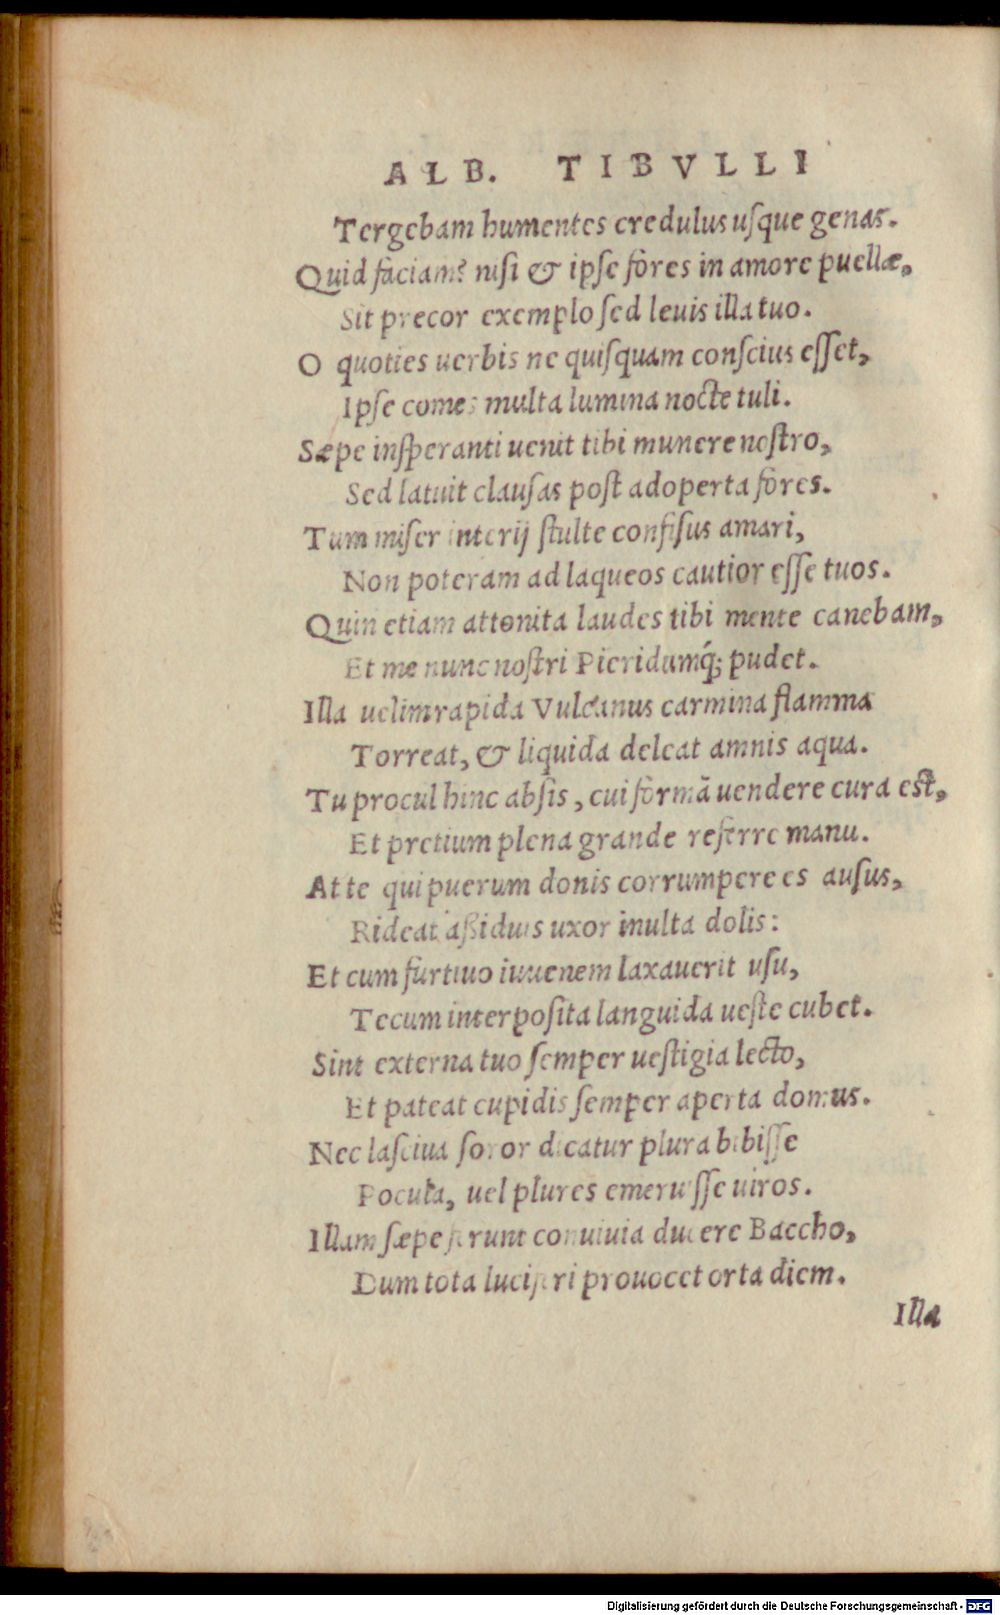 ALB. TIBVLLI
Tergebam humentes credulus uſque genas.
Quid faciam? niſi & ipſe fores in amore puellæ,
Sit precor exemplo ſed leuis illa tuo.
O quoties uerbis ne quiſquam conſcius eſſet,
Ipſe comes multa lumina nocte tuli.
Sæpe inſperanti uenit tibi munere noſtro,
Sed latuit clauſas poſt adoperta fores.
Tum miſer interij ſtulte confiſus amari,
Non poteram ad laqueos cautior eſſe tuos.
Quin etiam attonita laudes tibi mente canebam,
Et me nunc noſtri Pieridumq́; pudet.
Illa uelim rapida Vulcanus carmina flamma
Torreat, & liquida deleat amnis aqua.
Tu procul hinc abſis, cui formã uendere cura eſt,
Et pretium plena grande referre manu.
At te qui puerum donis corrumpere es auſus,
Rideat aßiduis uxor inulta dolis:
Et cum furtiuo iuuenem laxauerit uſu,
Tecum interpoſita languida ueſte cubet.
Sint externa tuo ſemper ueſtigia lecto,
Et pateat cupidis ſemper aperta domus.
Nec laſciua ſoror dicatur plura bibiſſe
Pocula, uel plures emeruiſſe uiros.
Illam ſæpe ferunt conuiuia ducere Baccho,
Dum tota luciferi prouocet orta diem.
Illa
Digitalisierung gefördert durch die Deutsche Forschungsgemeinschaft - DFG